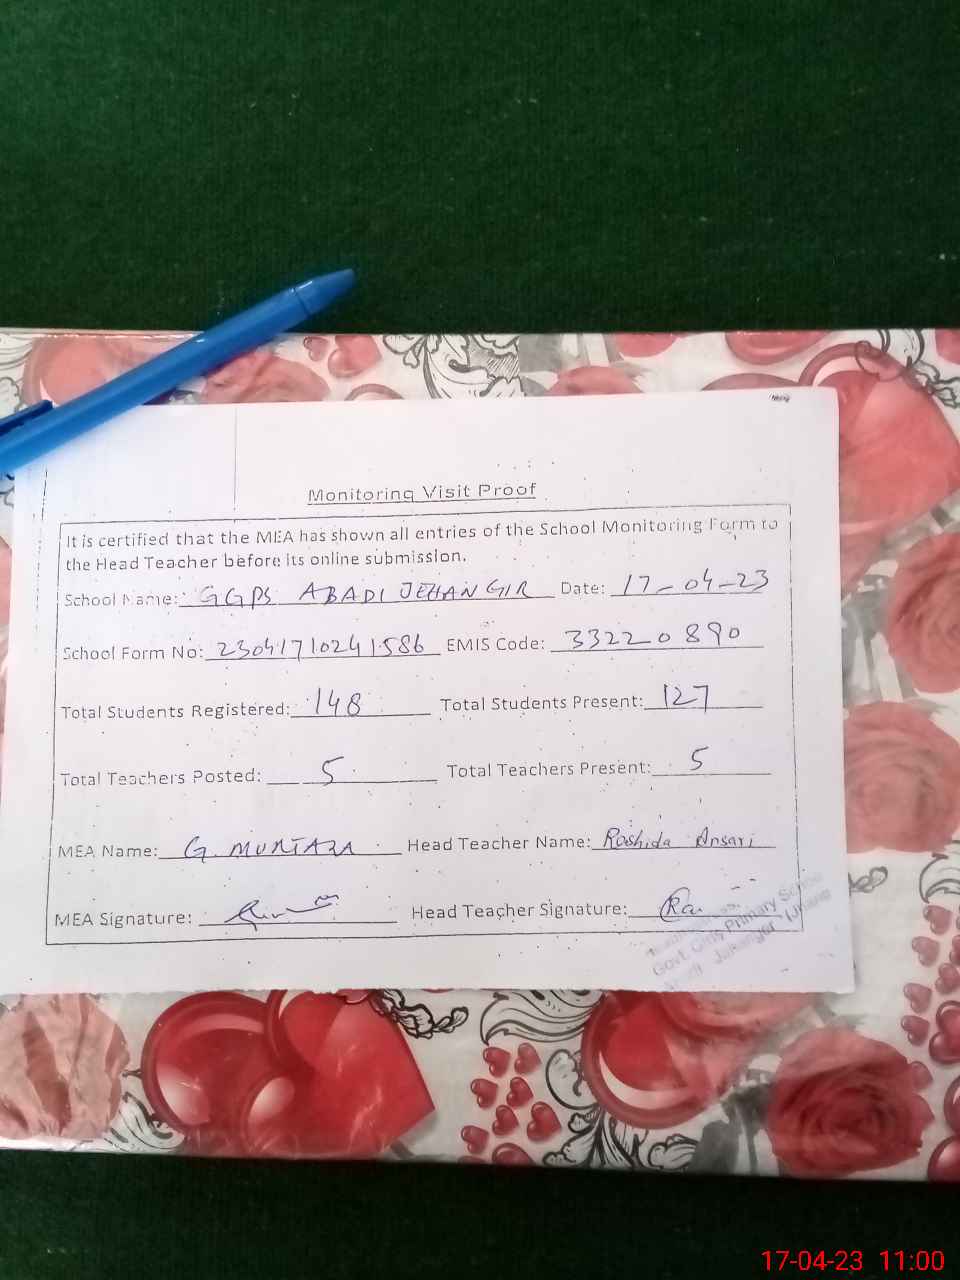 Monitoring Visit Proof
It is certified that the MEA has shown all entries of the School Monitoring Form to
the Head Teacher before its online submission.
School Name: GGPS ABADI JEHANGIR Date: 17-04-23
School Form No: 23041710241586 EMIS Code: 33220890
Total Students Registered: 148 Total Students Present: 127
Total Teachers Posted: 5 Total Teachers Present: 5
MEA Name: G. MURTAZA Head Teacher Name: Rashida Ansari
MEA Signature: Head Teacher Signature: Ra
Govt. Girls Primary School
17-04-23 11:00